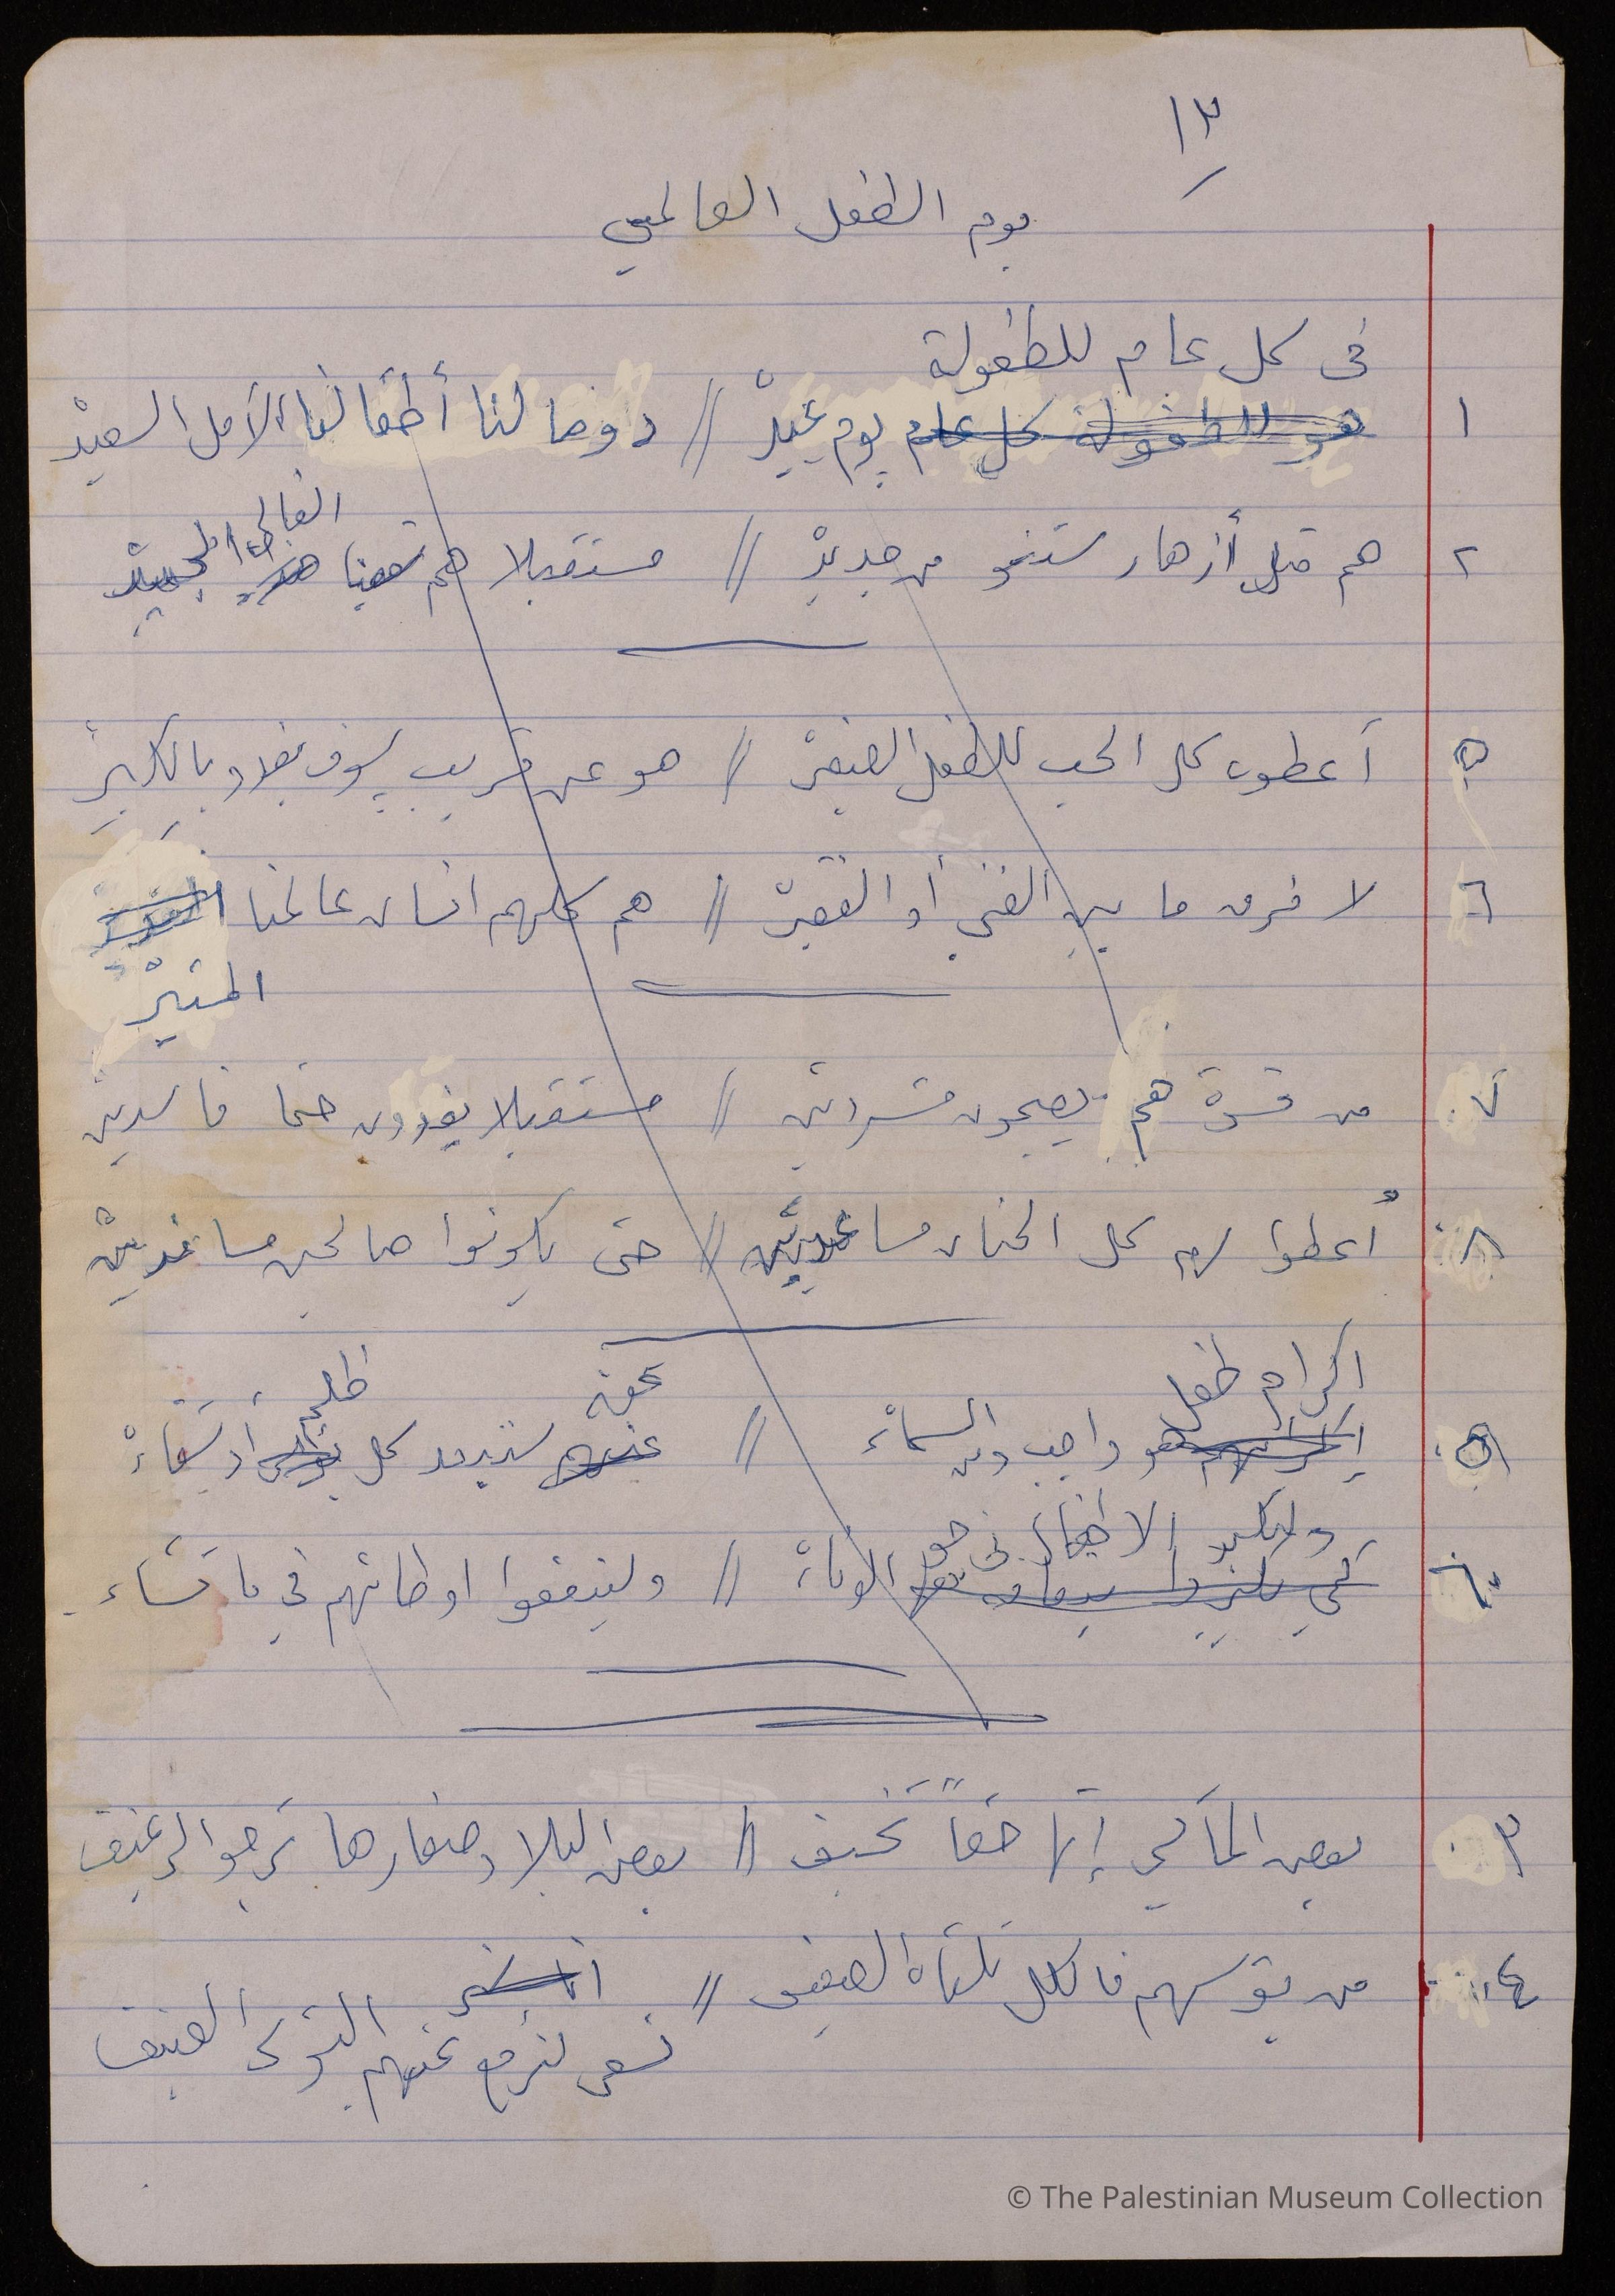 ١٣
يوم الطفل العالمي
في كل عام للطفولة
١ هو للطفولة كل عام يوم عيدْ // دوما لنا أطفالنا الأمل السعيدْ
الغالي
٢ هم مثل أزهار ستنمو من جديدْ // مستقبلا هم المجيدْ
٥ أعطوه كل الحب للطفل الصغيرْ // هو عن قريب سوف يغدو بالكبيرْ
٦ لا فرق ما بين الغني أو الفقيرْ // هم كلهم انسان عالمنا
المنيرْ
٧ من قسوة هم يصبحون مشردينْ // مستقبلا يغدون حتما فاسدينْ
٨ أعطوا لهم كل الحنان مساعدينْ // حتى يكونوا صالحين مساندينْ
اكرام طفل ظلم
هو واجب ودين السماءْ // ستبعد كل أو شقاءْ
وليكبر الاطفال في جو
الوفاءْ // ولينفعوا اوطانهم في ما تشاء
٣ بعض المآسي إنها حقاً تخيف // بعض البلاد صغارها ترجو الرغيف
٤ من بؤسهم فالكل تلقاه الضعيف //
نسعى لنرفع عنهم البؤس العنيف
© The Palestinian Museum Collection